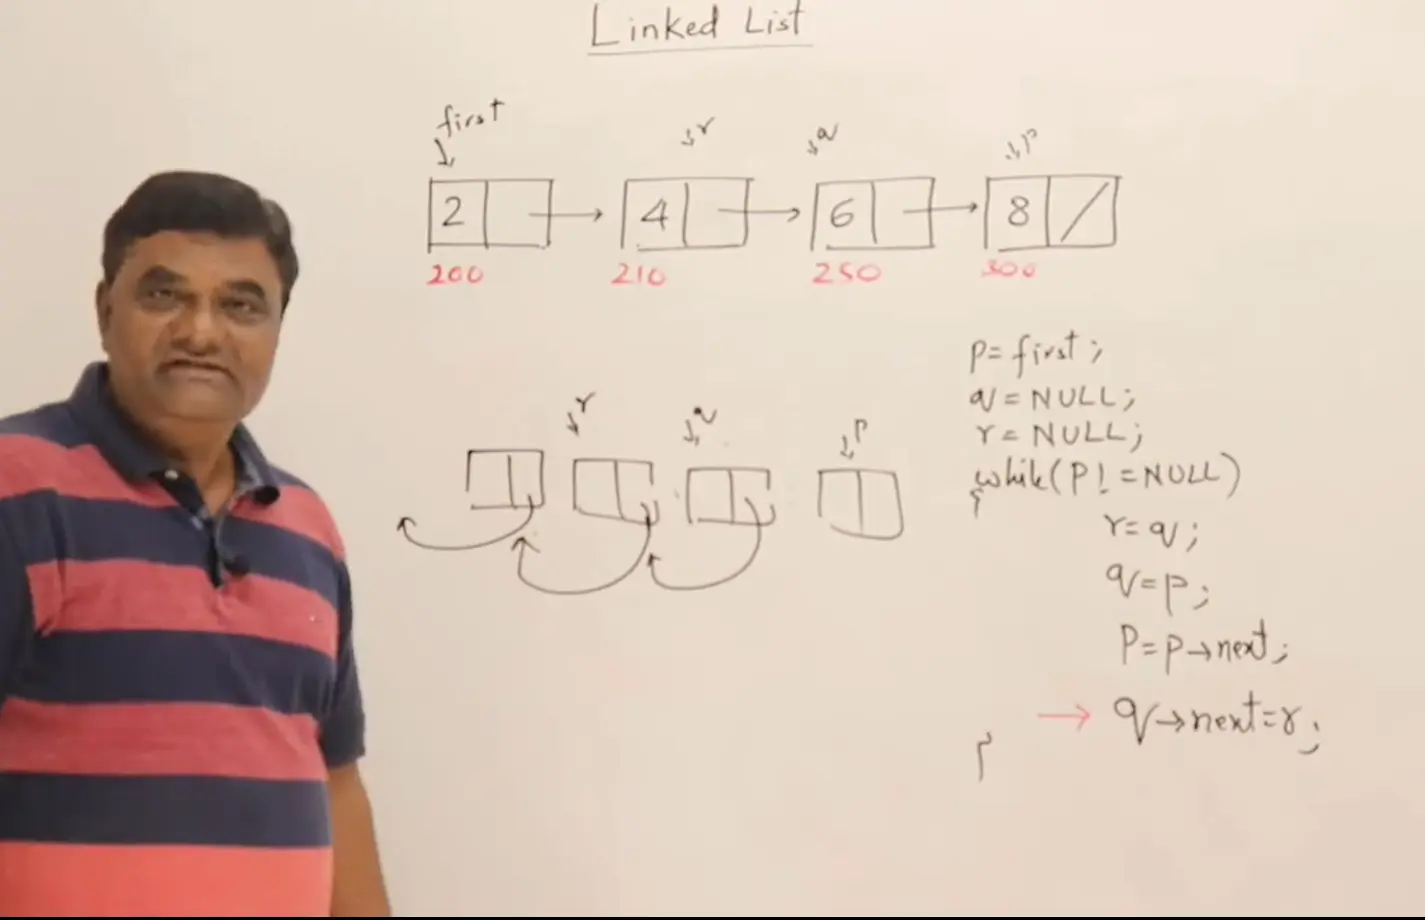 Linked List
first
r
q
p
2
4
6
8
200
210
250
300
r
q
p
p=first;
q=NULL;
r=NULL;
while(P!=NULL)
{
r=q;
q=p;
P=p→next;
→ q→next=r;
}